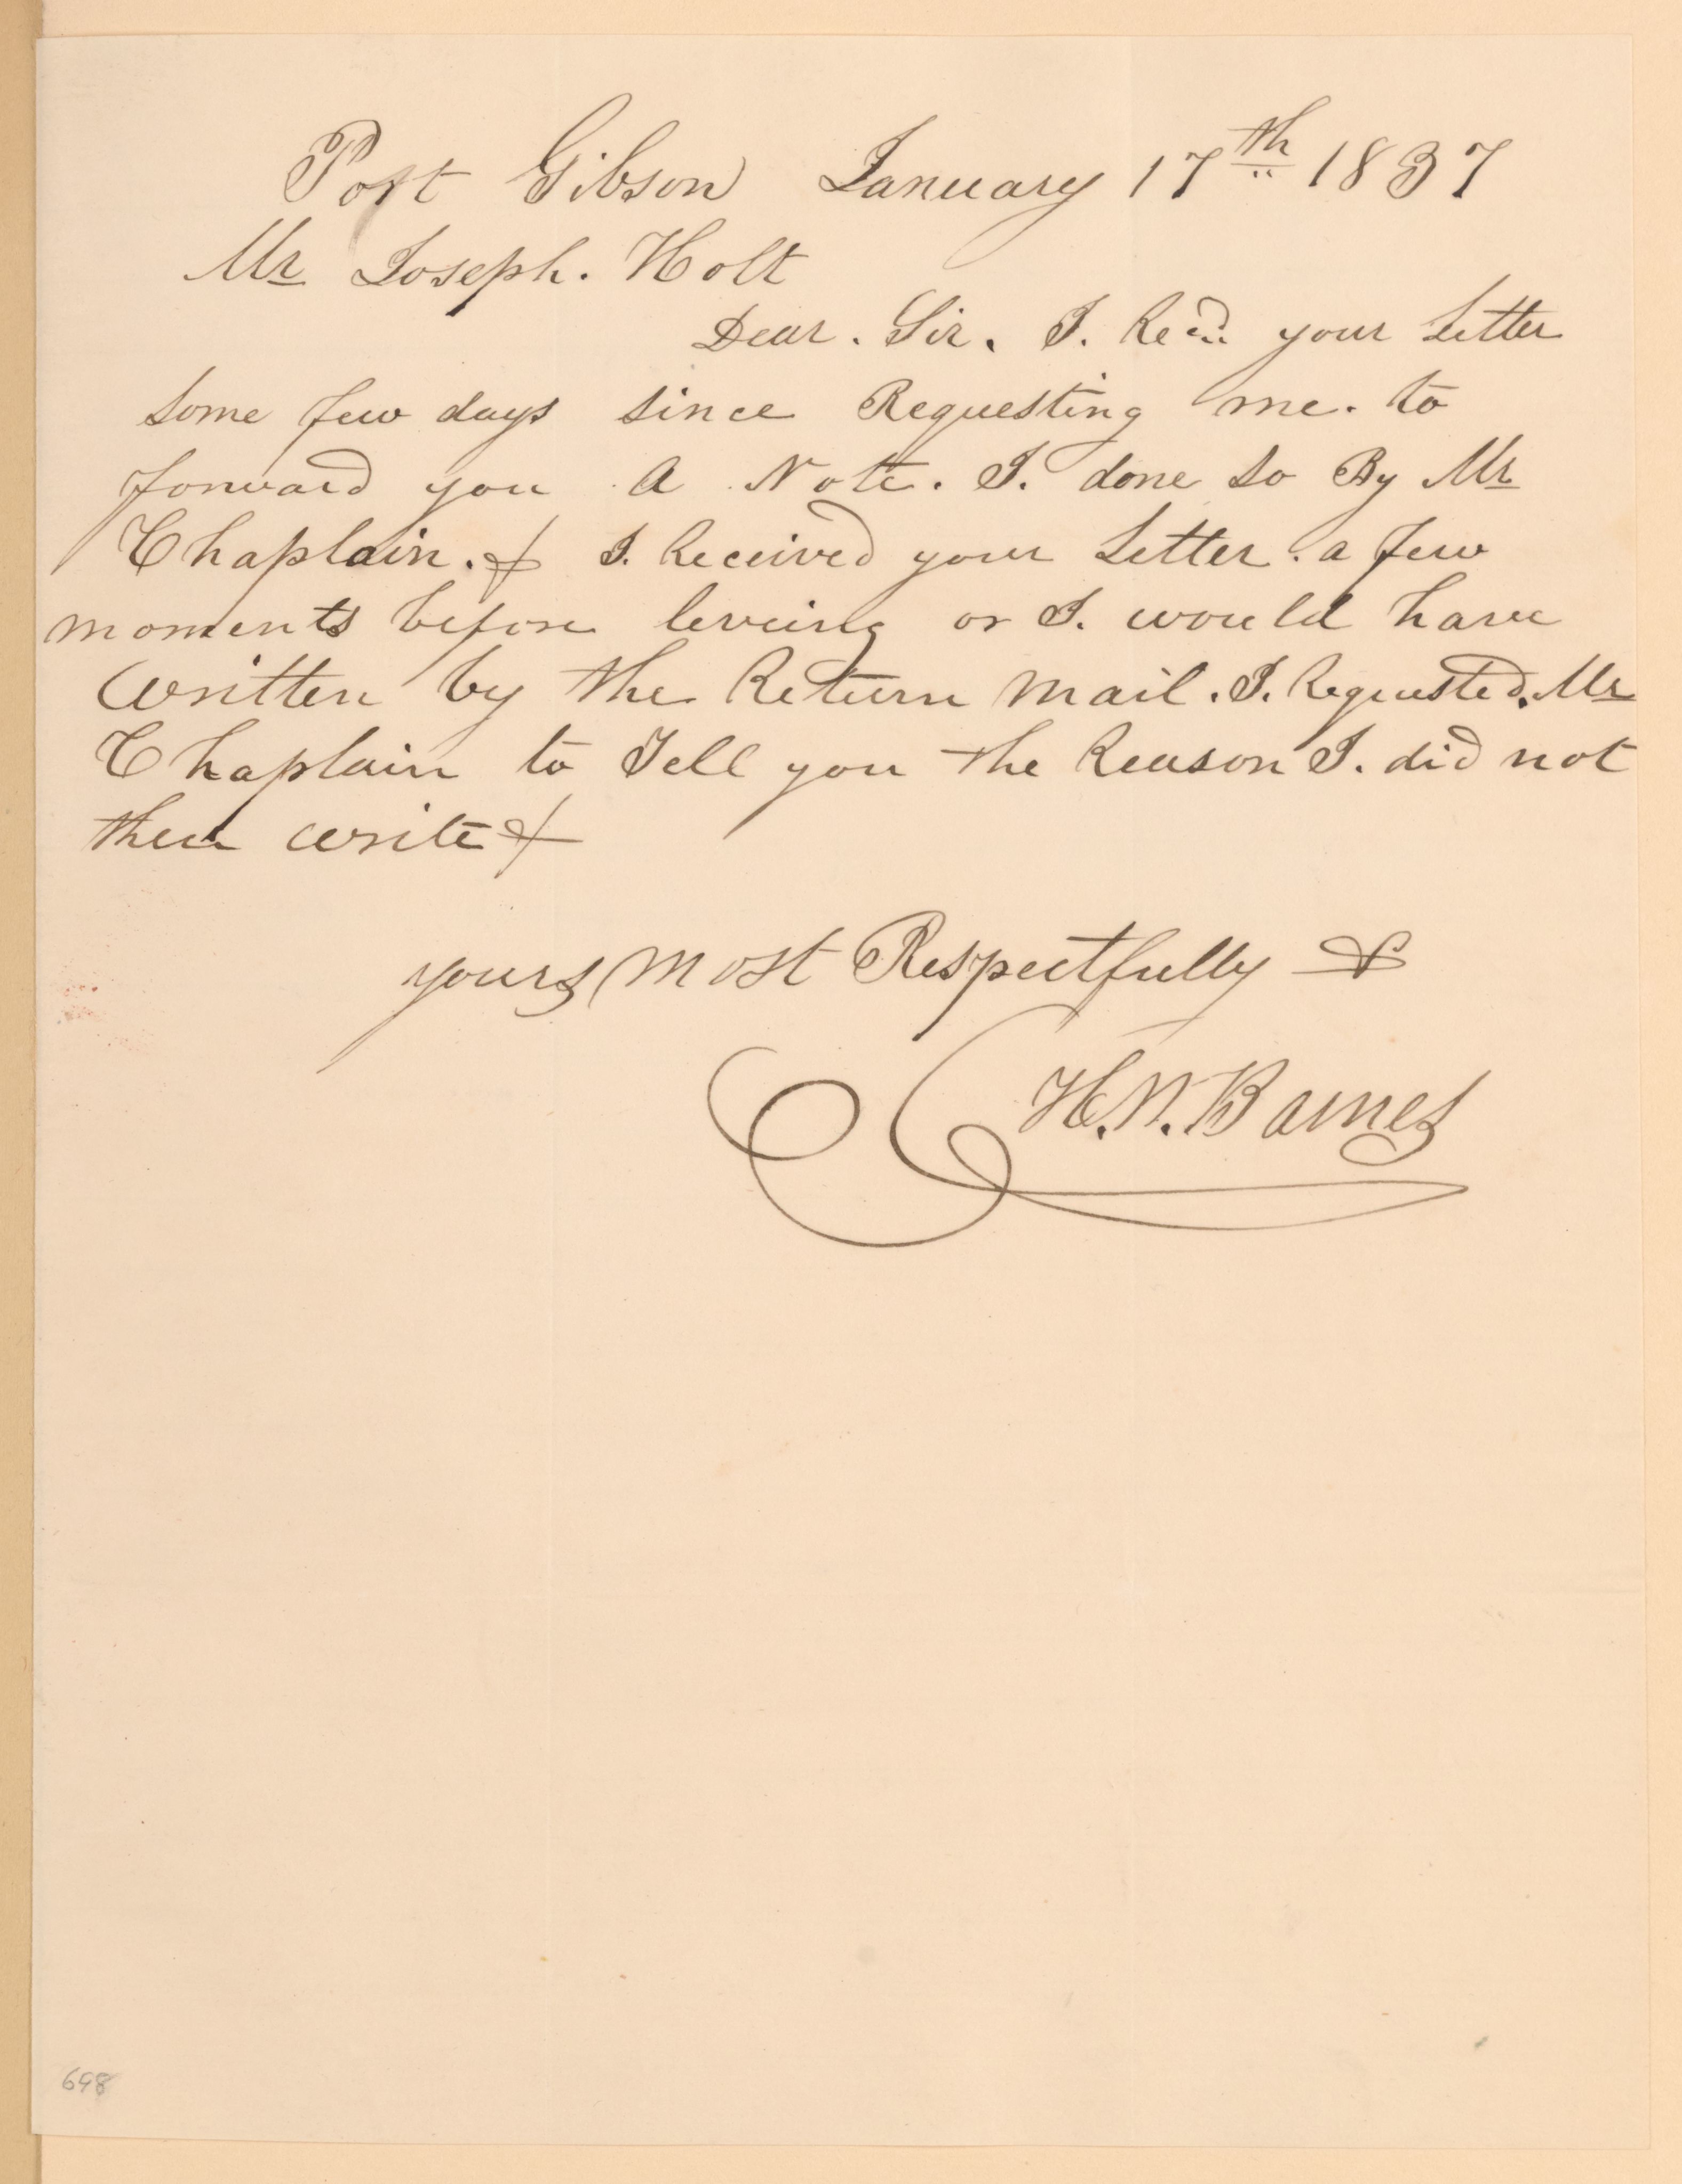 Port Gibson January 17th 1837
Mr Joseph. Holt
Dear. Sir. I. Recd. your Letter
some few days since Requesting me. to
forward you A Note. I. done so By Mr
Chaplain. & I. Received your Letter. a few
moments before leveing or I. would have
written by the Return mail. I. Requested. Mr
Chaplain to Tell you the Reason I. did not
then write &
yours most Respectfully &
H. N. Barnes
698